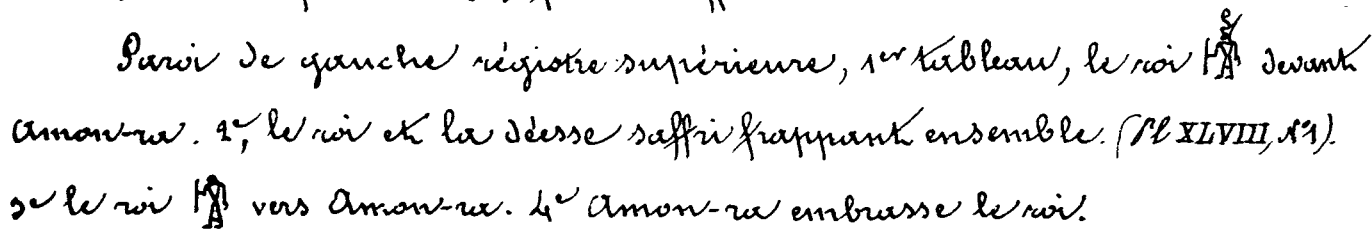 Paroi de gauche régistre supérieure, 1er tableau, le roi devant
Amon-ra. 2e, le roi et la déesse saffri frappant ensemble. (Pl XLVIII, N°1).
3e le roi vers Amon-ra. 4e Amon-ra embrasse le roi.